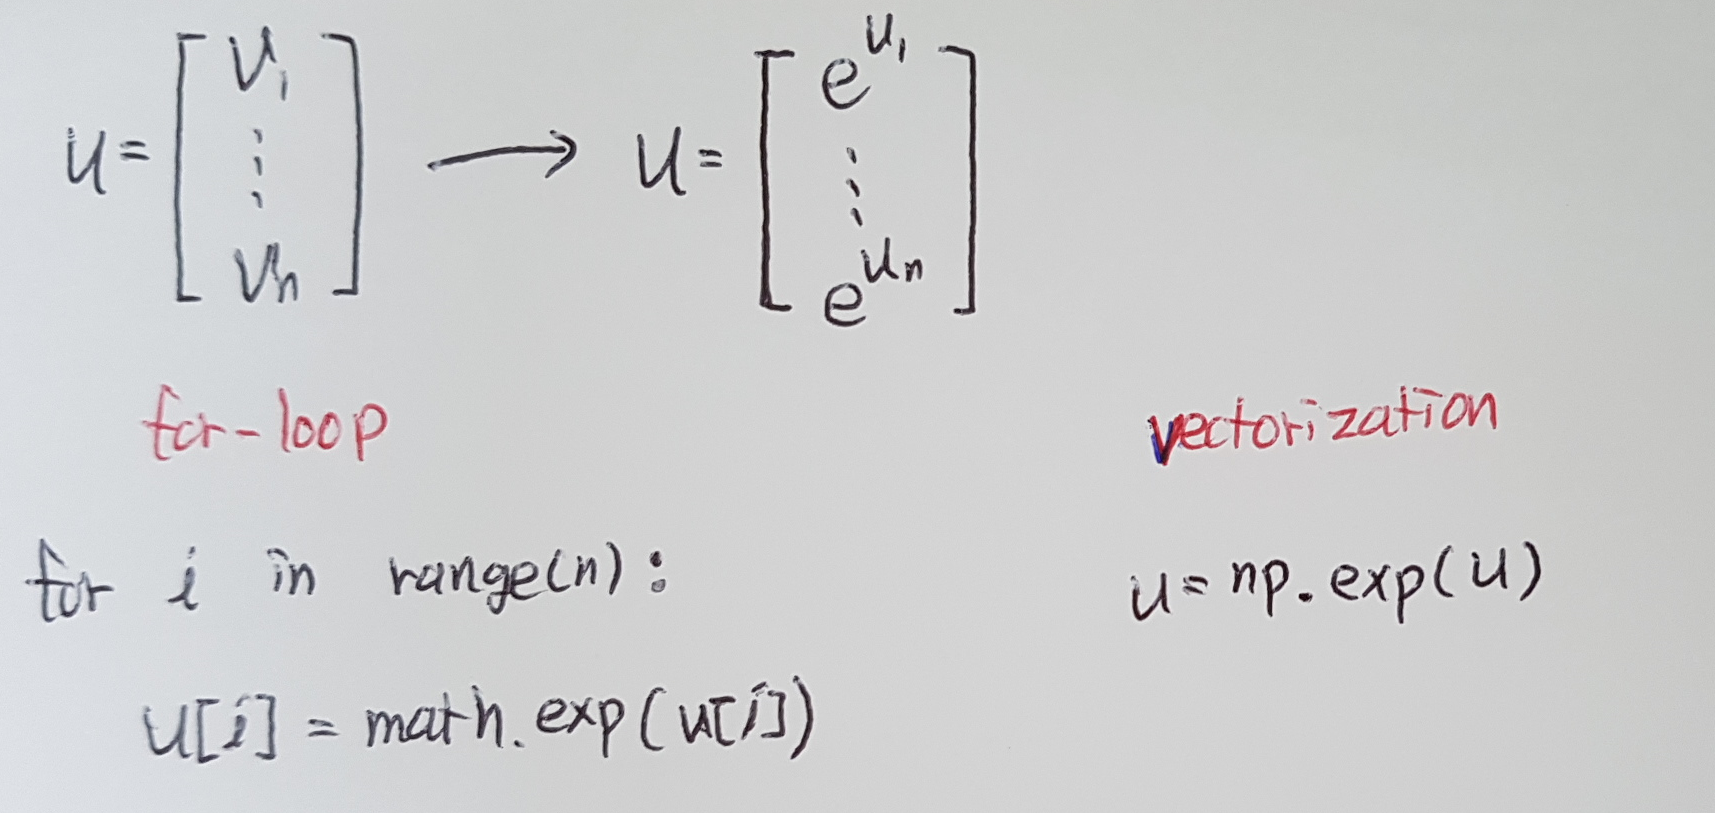 u = [ v₁ ⋮ vₙ ] → u = [ e^u₁ ⋮ e^uₙ ]
for-loop vectorization
for i in range(n): u = np.exp(u)
u[i] = math.exp(u[i])